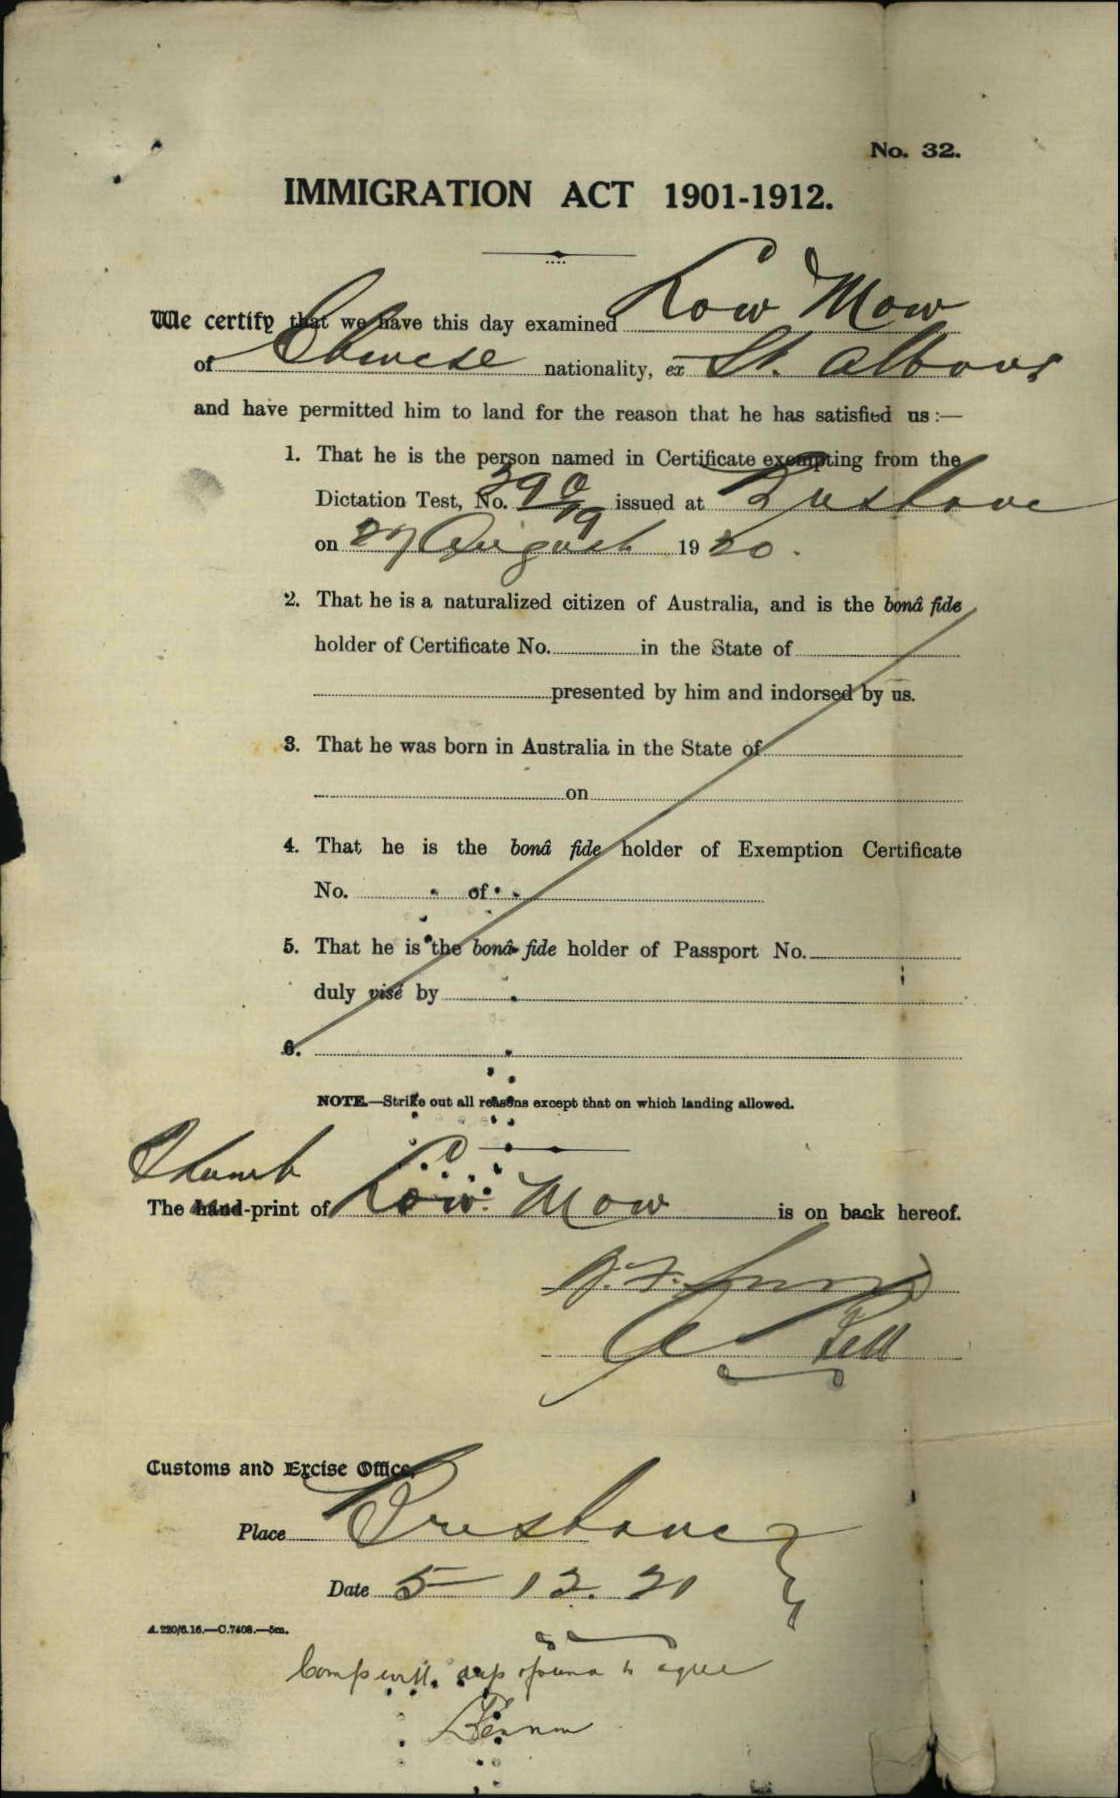 No. 32.
IMMIGRATION ACT 1901-1912.
We certify that we have this day examined Low Mow
of Chinese nationality, ex St. Albans
and have permitted him to land for the reason that he has satisfied us :—
1. That he is the person named in Certificate exempting from the
Dictation Test, No. 390/19 issued at Brisbane
on 27 August 1920.
2. That he is a naturalized citizen of Australia, and is the bonâ fide
holder of Certificate No. in the State of
presented by him and indorsed by us.
3. That he was born in Australia in the State of
on
4. That he is the bonâ fide holder of Exemption Certificate
No. of
5. That he is the bonâ fide holder of Passport No.
duly visé by
6.
NOTE.—Strike out all reasons except that on which landing allowed.
Thumb
The hand-print of Low Mow is on back hereof.
Bell
Customs and Excise Office,
Place Brisbane
Date 5 12. 21
A.220/6.16.—C.7408.—5m.
found to agree